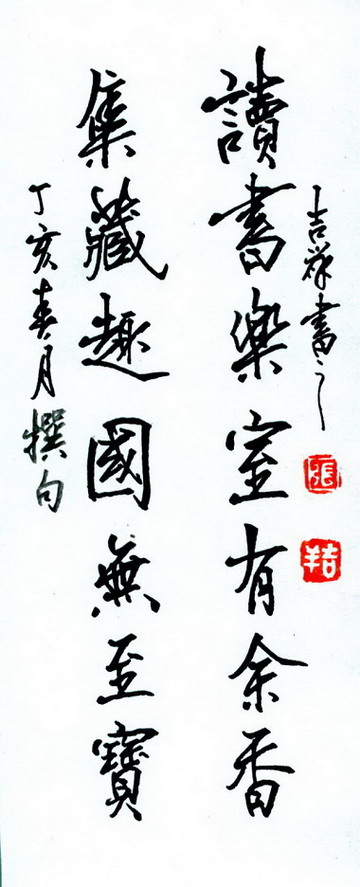 丁亥春月撰句
集藏趣國無至寶
讀書樂室有余香
吉祥書之
張
吉羊